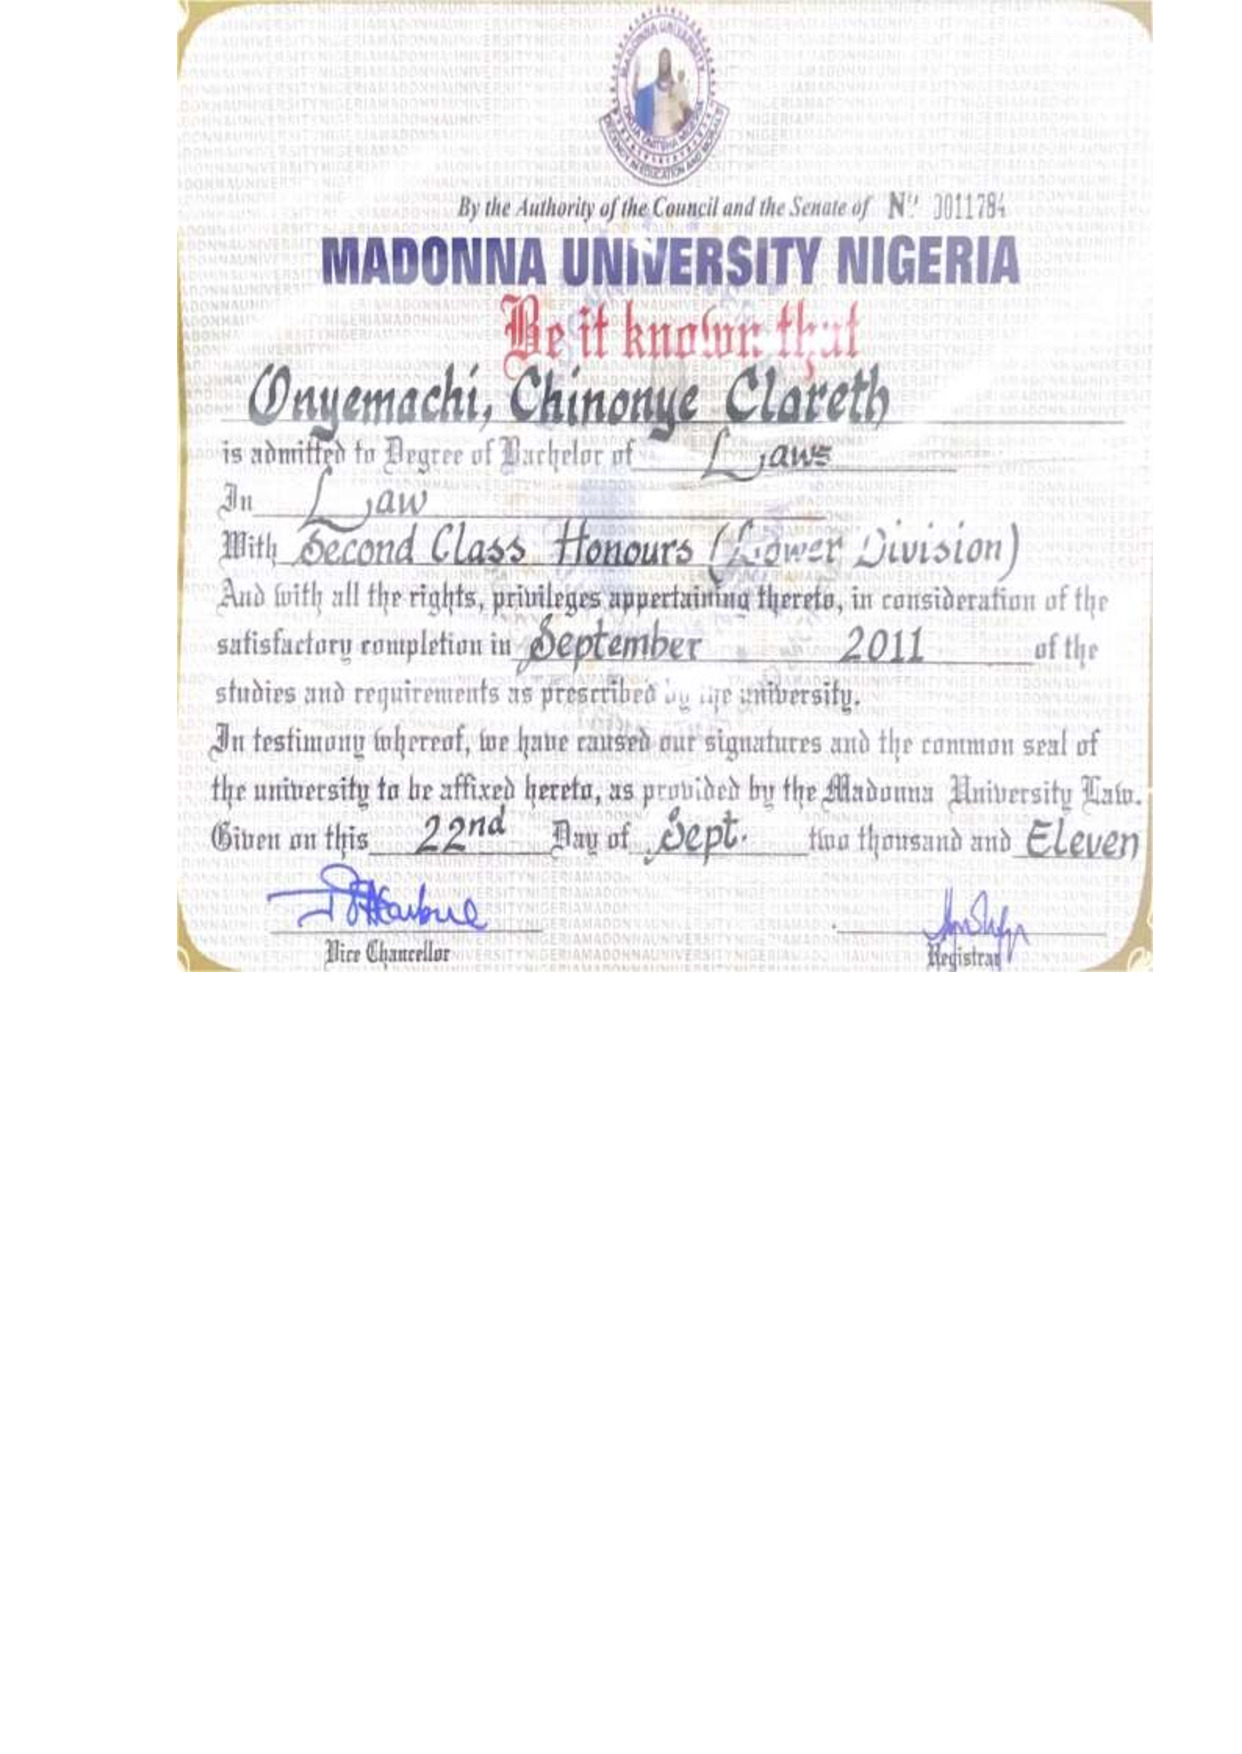 MADONNA UNIVERSITY
DECENCY IN EDUCATION AND MORALS
By the Authority of the Council and the Senate of Nº 0011784
MADONNA UNIVERSITY NIGERIA
Be it known that
Onyemachi, Chinonye Clareth
is admitted to Degree of Bachelor of Laws
In Law
With Second Class Honours (Lower Division)
And with all the rights, privileges appertaining thereto, in consideration of the
satisfactory completion in September 2011 of the
studies and requirements as prescribed by the university.
In testimony whereof, we have caused our signatures and the common seal of
the university to be affixed hereto, as provided by the Madonna University Law.
Given on this 22nd Day of Sept. two thousand and Eleven
Vice Chancellor Registrar